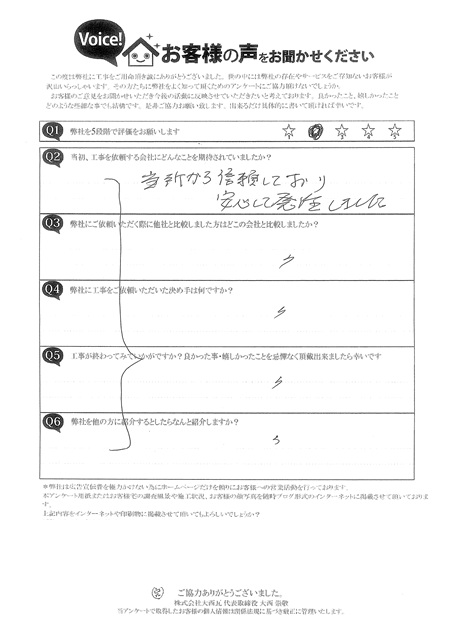 Voice!
お客様の声をお聞かせください
この度は弊社に工事をご用命頂き誠にありがとうございました。世の中には弊社の存在やサービスをご存知ないお客様が
沢山いらっしゃいます。その方たちに弊社をよく知って頂くためのアンケートにご協力願けないでしょうか?
お客様のご意見をお聞かせいただき今後の活動に反映させていただきたいと考えております。良かったこと、嬉しかったこと
どのような些細な事でも結構です。是非ご協力お願い致します。出来るだけ具体的に書いて頂ければ幸いです。
Q1 弊社を5段階で評価をお願いします
1 2 3 4 5
Q2 当初、工事を依頼する会社にどんなことを期待されていましたか?
当初から信頼しており
安心して発注しました
Q3 弊社にご依頼いただく際に他社と比較しました方はどこの会社と比較しましたか?
〃
Q4 弊社に工事をご依頼いただいた決め手は何ですか?
〃
Q5 工事が終わってみていかがですか?良かった事・嬉しかったことを忌憚なく頂戴出来ましたら幸いです
〃
Q6 弊社を他の方に紹介するとしたらなんと紹介しますか?
〃
*弊社は広告宣伝費を極力かけない為にホームページだけを頼りにお客様への営業活動を行っております。
本アンケート用紙またはお客様宅の調査風景や施工状況、お客様の顔写真を随時ブログ形式のインターネットに掲載させて頂いております。
上記内容をインターネットや印刷物に掲載させて頂いてもよろしいでしょうか?
ご協力ありがとうございました。
株式会社大西瓦 代表取締役 大西 崇敬
当アンケートで取得したお客様の個人情報は関係法規に基づき厳正に管理いたします。